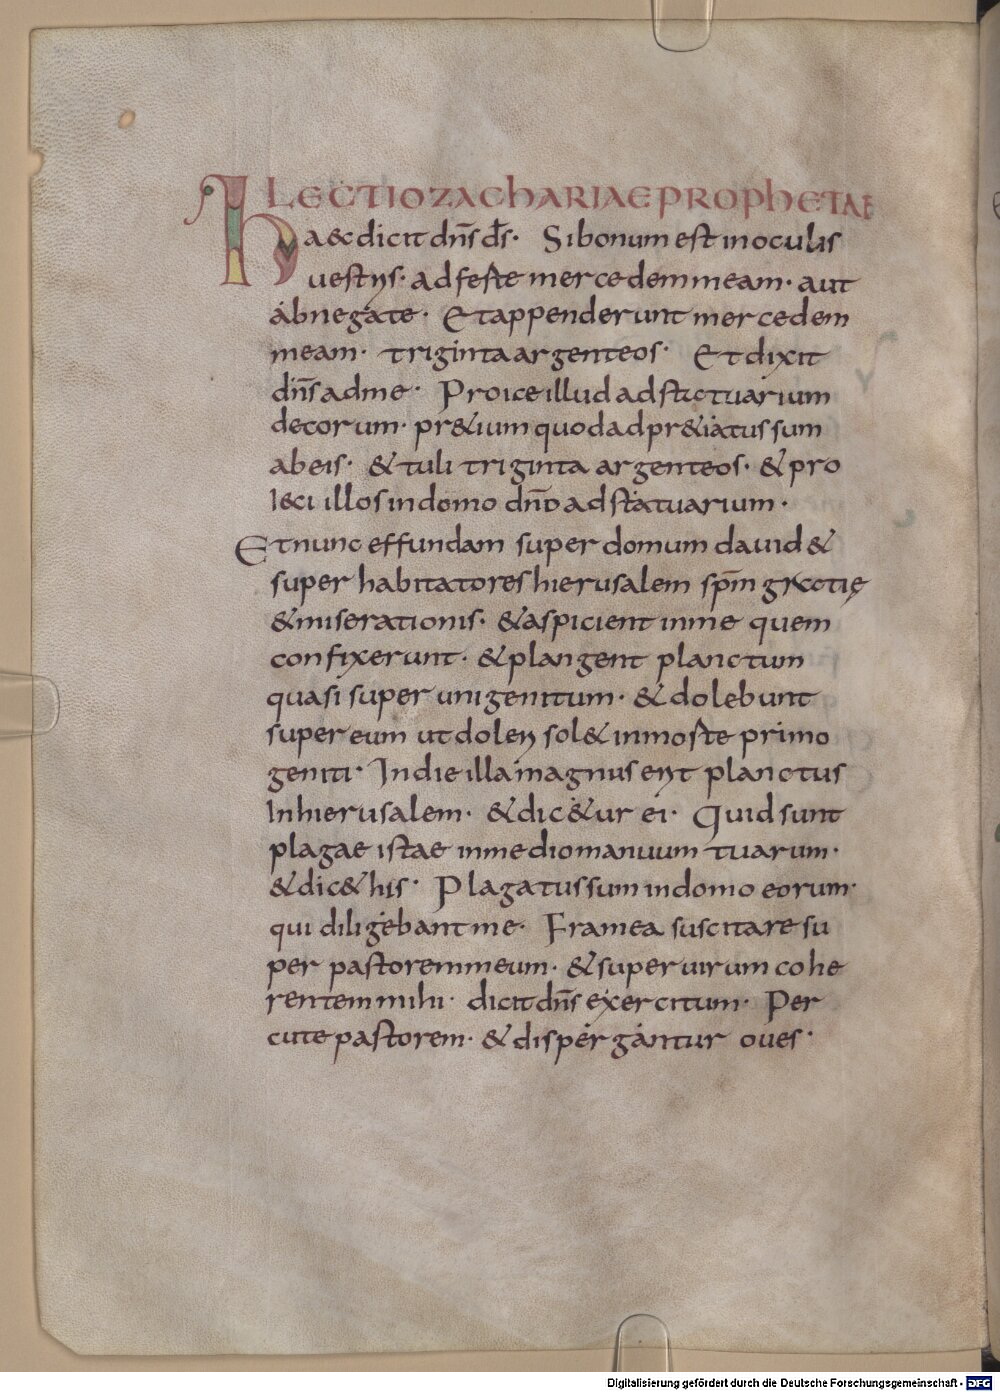 LECTIO ZACHARIAE PROPHETAE
Ha&c dicit dn̄s d̄s· Si bonum est in oculis
vestris· adferte mercedem meam· aut
abnegate· Et appenderunt mercedem
meam· triginta argenteos· Et dixit
dn̄s ad me· Proice illud ad statuarium
decorum· pr&ium quod adpr&iatus sum
ab eis· & tuli triginta argenteos· & pro
ieci illos in domo dn̄o ad statuarium·
Et nunc effundam super domum dauid &
super habitatores hierusalem sp̄m gratię
& miserationis· & aspicient in me quem
confixerunt· & plangent planctum
quasi super unigenitum· & dolebunt
super eum ut doleri sol& in morte primo
geniti· In die illa magnus erit planctus
In hierusalem· & dic&ur ei· Quid sunt
plagae istae in medio manuum tuarum·
& dic& his· Plagatus sum in domo eorum·
qui diligebant me· Framea suscitare su
per pastorem meum· & super uirum cohe
rentem mihi· dicit dn̄s exercitum· Per
cute pastorem· & dispergantur oues·
Digitalisierung gefördert durch die Deutsche Forschungsgemeinschaft - DFG